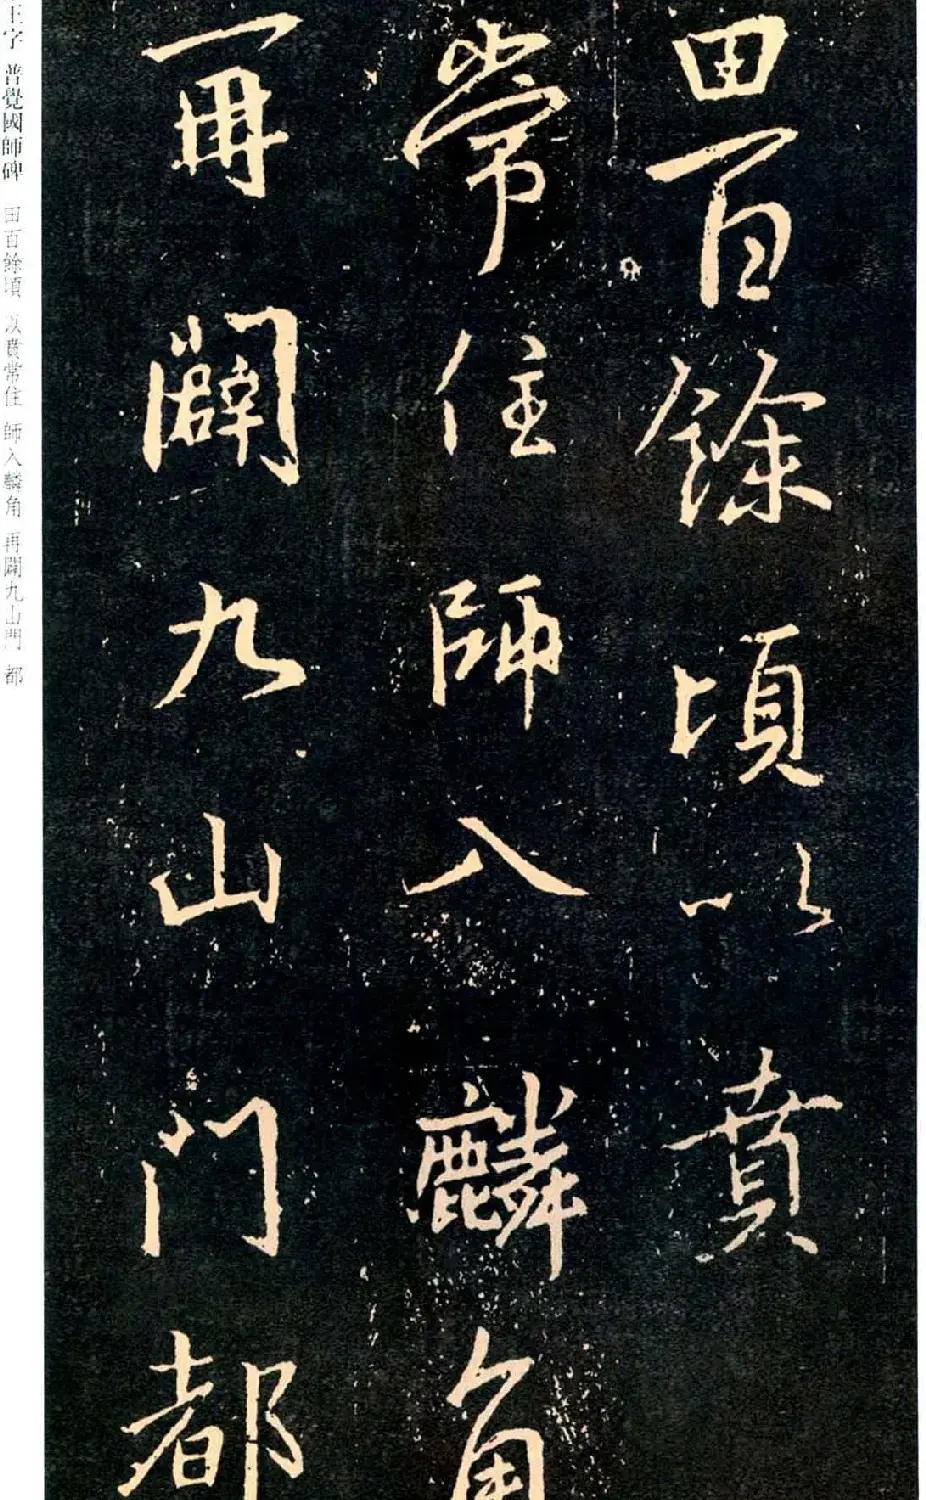 田百餘頃以賁
常住師入麟角
再闢九山門都
王字 普覺國師碑 田百餘頃 以賁常住 師入麟角 再闢九山門 都